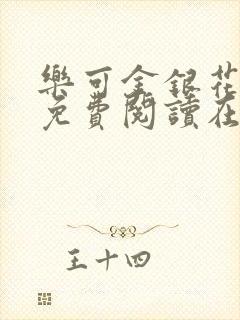 樂可金銀花
免費閱讀在
王十四